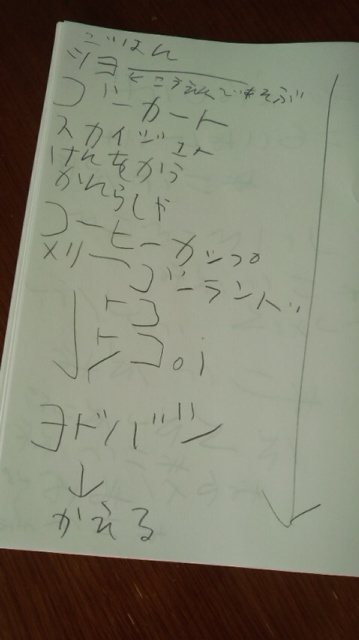 ごはん
ショー ← こうえんであそぶ
ゴーカート
スカイジェット
けんをかう
かんらんしゃ
コーヒーカップ
メリーゴーランド
↓トコ
トコ。j
ヨドバシ
↓
かえる